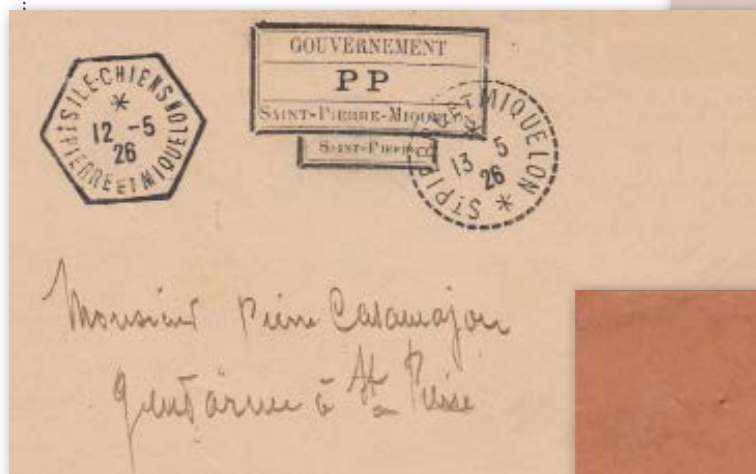 ILE-CHIENS
ST PIERRE ET MIQUELON
*
12 -5
26
GOUVERNEMENT
P P
SAINT-PIERRE-MIQUELON
SAINT-PIERRE
ST PIERRE ET MIQUELON *
13 5
26
Monsieur Pierre Casamajor
gendarme à St Pierre